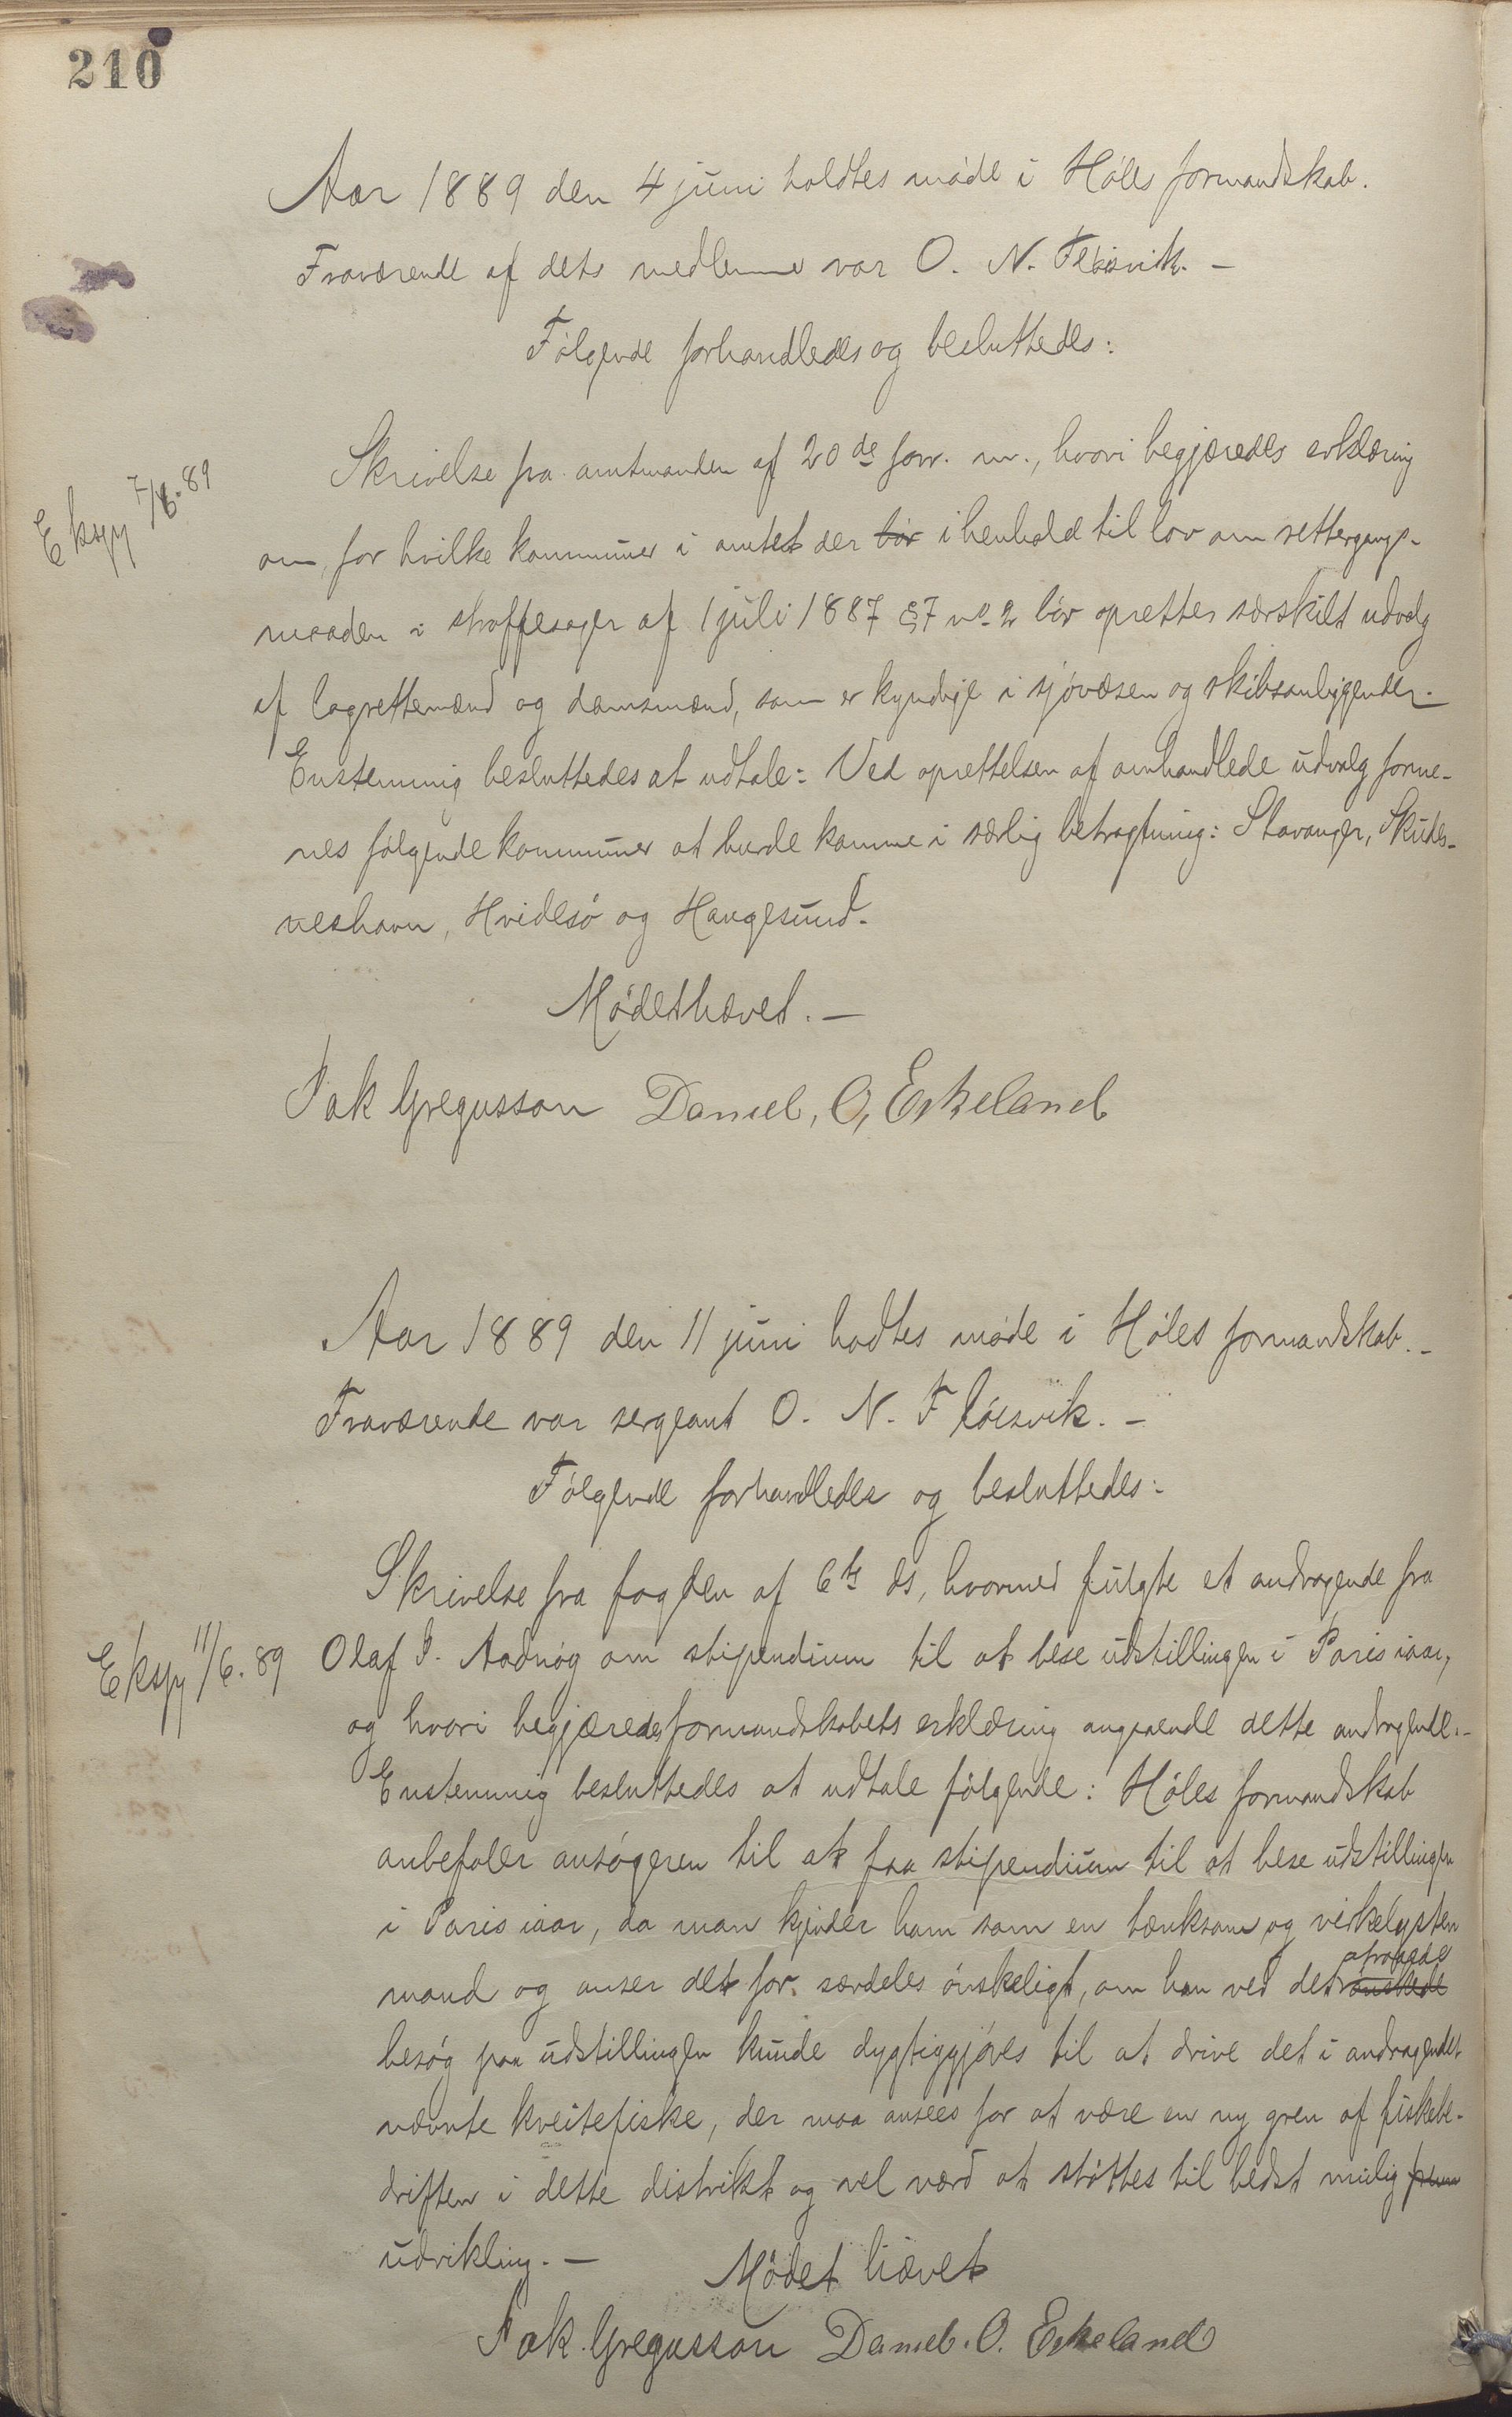 210
Aar 1889 den 4 juni holdtes møde i Høles formandskab.
Fraværende af dets medlemmer var O. N. Fløisvik. —
Følgende forhandledes og besluttedes:
Ekspy 7/6. 89
Skrivelse fra amtmanden af 20de forr. m., hvori begjæredes erklæring
om, for hvilke kommuner i amtet der bør i henhold til lov om rettergangs-
maaden i straffesager af 1 juli 1887 §7 no 2 bør oprettes særskilt udvalg
af lagrettemænd og domsmænd, som er kyndige i sjøvæsen og skibsanliggender.
Enstemmig besluttedes at udtale: Ved oprettelsen af omhandlede udvalg forme-
nes følgende kommuner at burde komme i særlig betragtning: Stavanger, Skudes-
neshavn, Hvidesø og Haugesund.
Mødet hævet. —
Jak Gregusson Daniel, O, Eskeland
Aar 1889 den 11 juni hodtes møde i Høles formandskab. –
Fraværende var sergeant O. N. Fløisvik. –
Følgende forhandledes og besluttedes:
Skrivelse fra fogden af 6te ds, hvormed fulgte et andragende fra
Ekspy 11/6. 89
Olaf J. Aadnøg om stipendium til at bese udstillingen i Paris iaar,
og hvori begjæredes formandskabets erklæring angaaende dette andragende. –
Enstemmig besluttedes at udtale følgende: Høles formandskab
anbefaler ansøgeren til at faa stipendium til at bese udstillingen
i Paris iaar, da man kjender ham som en tænksom og virkelysten
mand og anser det for særdeles ønskeligt, om han ved det ønskede attraaede
besøg paa udstillingen kunde dygtiggjøres til at drive det i andragendet
nævnte kveitefiske, der maa ansees for at være en ny gren af fiskebe-
driften i dette distrikt og vel værd at støttes til bedst mulig
udvikling. —
Mødet hævet
Jak. Gregusson Daniel. O. Eskeland